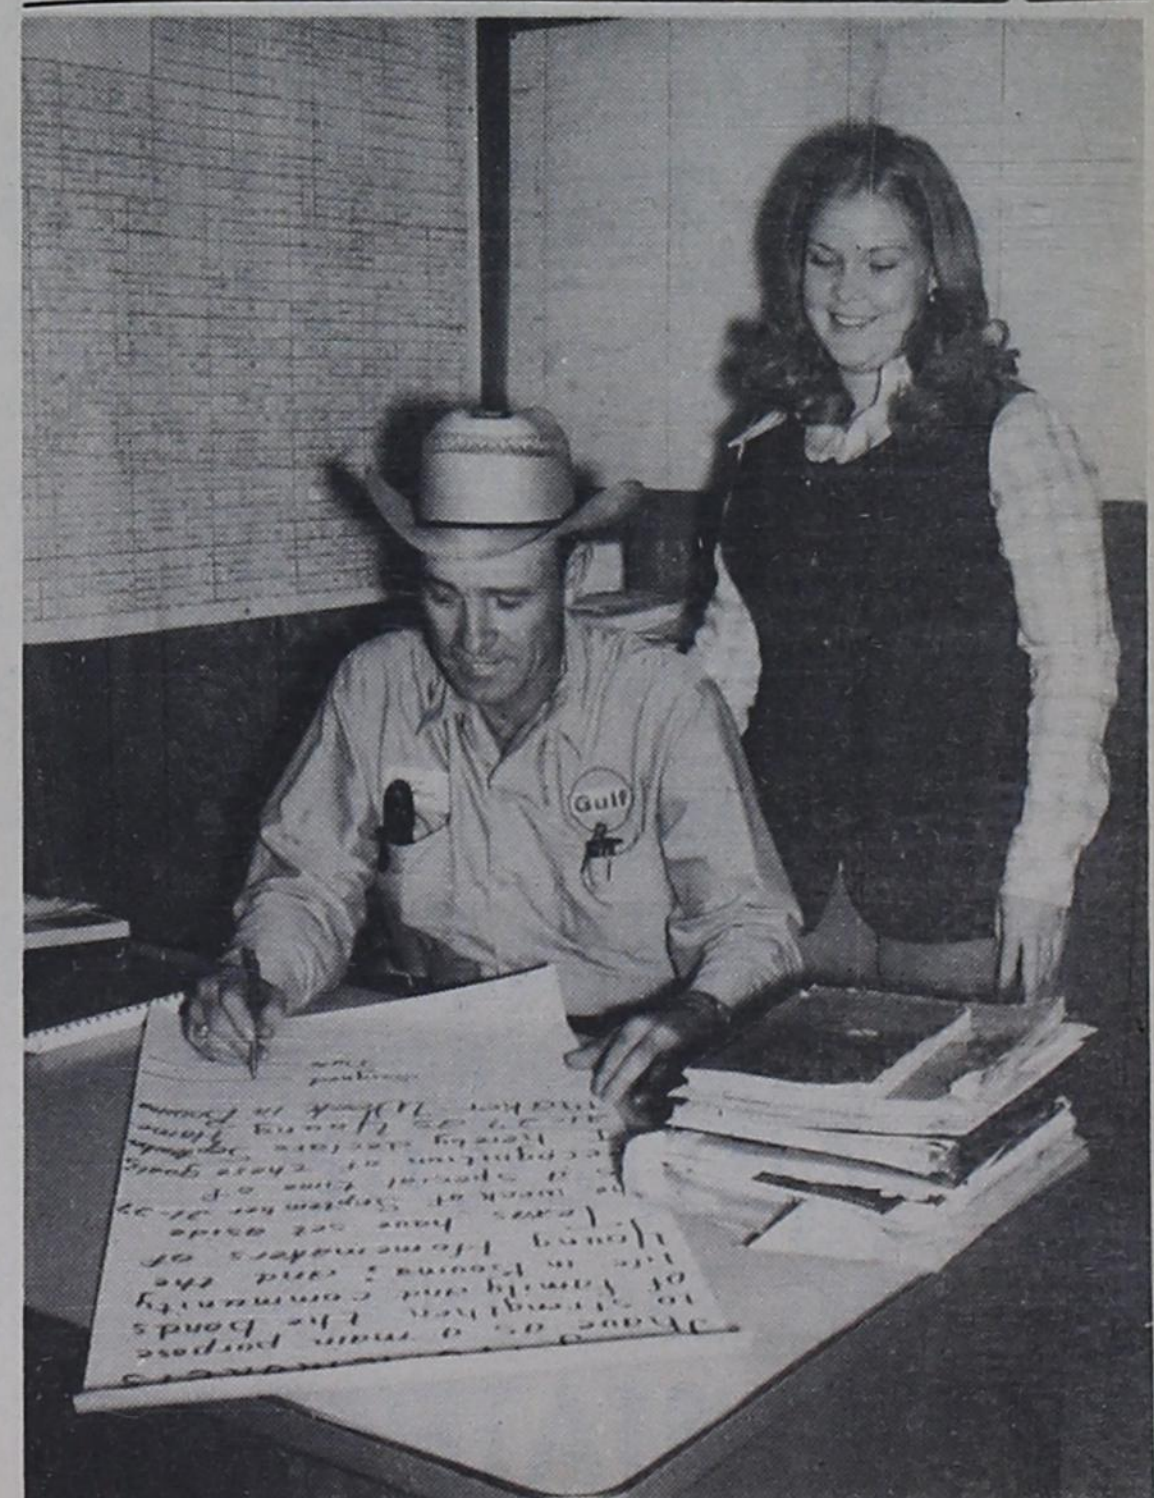 Gulf
have as a main purpose
to strengthen the bonds
of family and community
life in Bovina; and the
Young Homemakers of
Texas have set aside
the week of September 21-27
as a special time of
recognition of these goals
I hereby declare
21-27 as Young Home
maker Week in Bovina
Signed